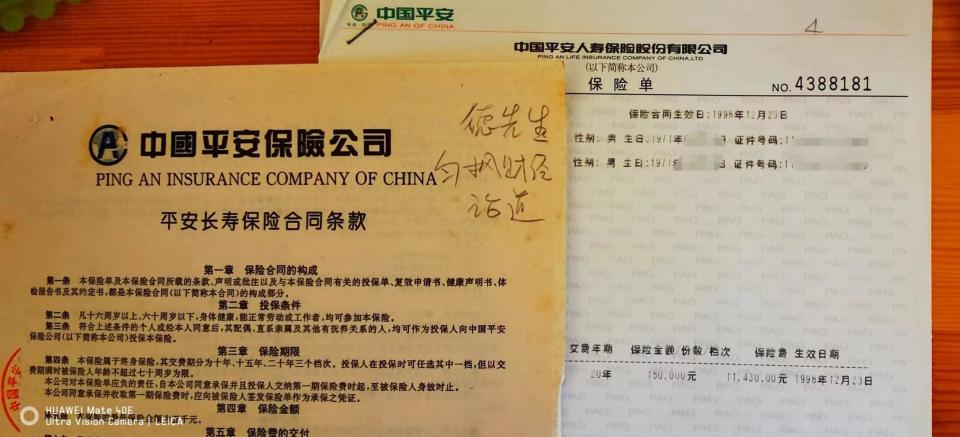 中国平安
PING AN OF CHINA
4
中国平安人寿保险股份有限公司
PING AN LIFE INSURANCE COMPANY OF CHINA,LTD
(以下简称本公司)
保 险 单
NO.4388181
保险合同生效日:1996年12月23日
性别: 男 生日:1971年 证件号码:1
性别: 男 生日:1971 证件号码:1
交费年期 保险金额/份数/档次 保险费 生效日期
20年 150,000元 11,430.00元 1996年12月23日
中國平安保險公司
PING AN INSURANCE COMPANY OF CHINA
德先生
勺枫财经
论道
平安长寿保险合同条款
第一章 保险合同的构成
第一条 本保险单及本保险合同所载的条款、声明或批注以及与本保险合同有关的投保单、复效申请书、健康声明书、体
检报告书及其约定书,都是本保险合同(以下简称本合同)的构成部分。
第二章 投保条件
第二条 凡十六周岁以上、六十周岁以下,身体健康,能正常劳动或工作者,均可参加本保险。
第三条 符合上述条件的个人或经本人同意后,其配偶、直系亲属及其他有抚养关系的人,均可作为投保人向中国平安
保险公司(以下简称本公司)投保本保险。
第三章 保险期限
第四条 本保险属于终身保险,其交费期分为十年、十五年、二十年三个档次。投保人在投保时可任选其中一档,但以交
费期满时被保险人年龄不超过七十周岁为限。
本公司对本保险单应负的责任,自本公司同意承保并且投保人交纳第一期保险费时起,至被保险人身故时止。
本公司同意承保并收取第一期保险费时,应向被保险人签发保险单作为承保之凭证。
第四章 保险金额
千元。
第五章 保险费的交付
中国平安
HUAWEI Mate 40E
Ultra Vision Camera | LEICA